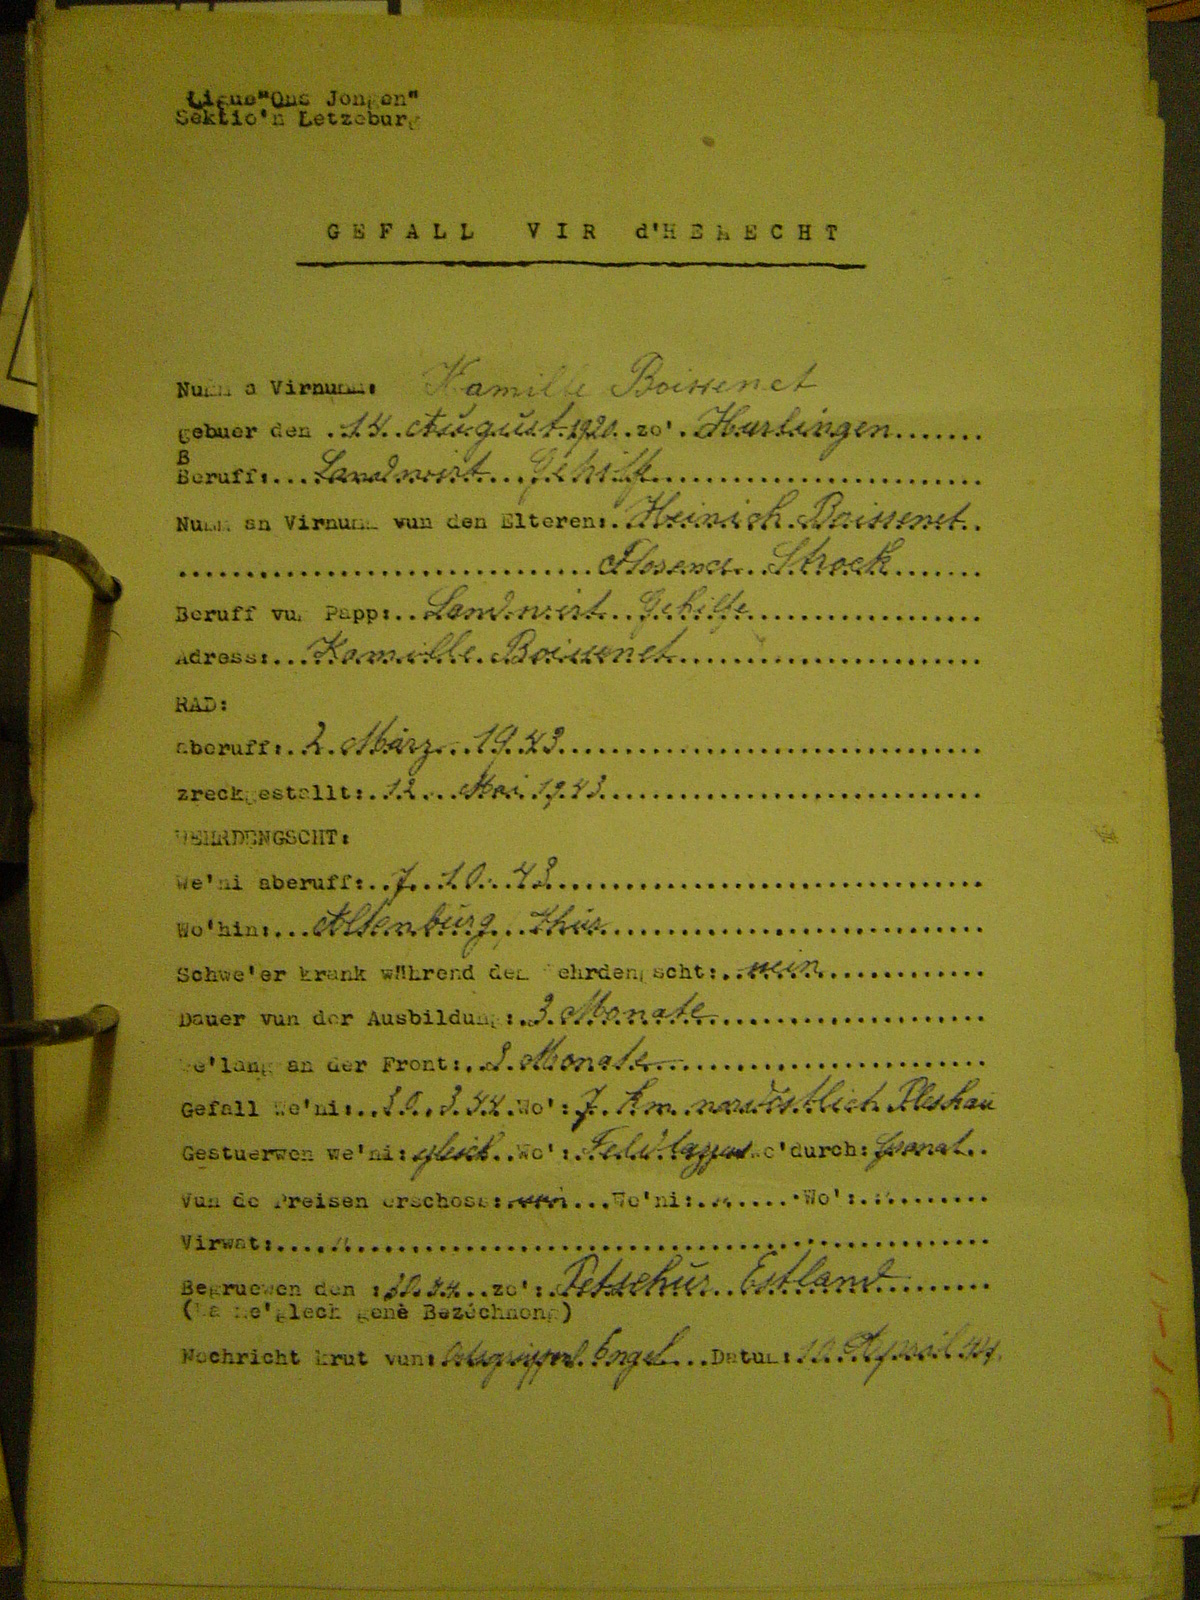 Ligue "Ons Jongen"
Sektio'n Letzeburg
GEFALL VIR d'HEMECHT
Numm a Virnumm: Kamille Boissenet
gebuer den .14. August 1920. zo'. Harlingen.......
B
Beruff:...Landwirt...Gehilfe.......
Numm an Virnumm vun den Elteren: Heinrich Boissenet..
.......Florence...Strock.......
Beruff vum Papp:..Landwirt..Gehilfe.......
Adress:...Kamille Boissenet.......
RAD:
aberuff:..2. März..1943.......
zreckgestallt:.12...Mai 1943.......
WEHRDENGSCHT:
We'ni aberuff:..7..10..43.......
Wo'hin:...Altenburg, Thür.......
Schwe'er krank während dem Wehrdengscht:..nein.......
Dauer vun der Ausbildung:.3 Monate.......
We'lang an der Front:..2 Monate.......
Gefall We'ni:..30.3.44.Wo': 7. km nordöstlich Pleskau
Gestuerwen we'ni: gleich..Wo': wo'durch: Granat..
Vun de Preisen erschoss: nein...We'ni:..".....Wo':..".......
Virwat:....".......
Begruewen den : zo': Petschur..Estland.......
(Wa me'glech genè Bezéchnong)
Nochricht krut vun: Engel...Datum: 10. April 44.